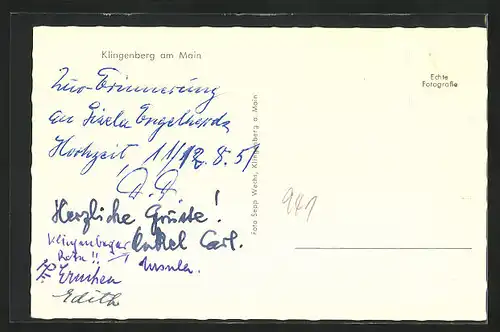 Klingenberg am Main
Echte
Fotografie
Zur Erinnerung
an Gisela Engelhards
Hochzeit, 11/12. 8. 51
Herzliche Grüsse!
Klingenberger Onkel Carl.
Rotn!!
Ursula.
Ernchen
Edith
Foto Sepp Wecht, Klingenberg a. Main
941